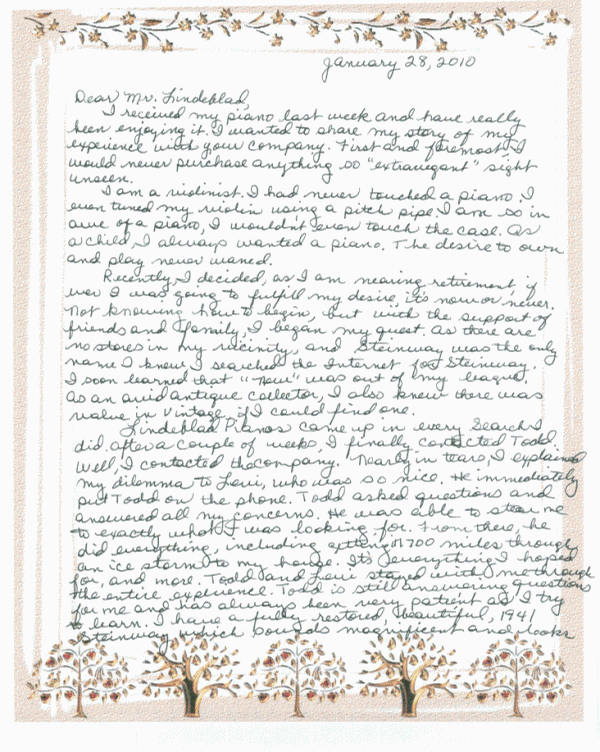 January 28, 2010
Dear Mr. Lindeblad,
I received my piano last week and have really
been enjoying it. I wanted to share my story of my
experience with your company. First and foremost, I
would never purchase anything so "extravegant" sight
unseen.
I am a violinist. I had never touched a piano. I
even tuned my violin using a pitch pipe. I am so in
awe of a piano, I wouldn't even touch the case. As
a child, I always wanted a piano. The desire to own
and play never waned.
Recently, I decided, as I am nearing retirement, if
ever I was going to fulfill my desire, it's now or never.
Not knowing how to begin, but with the support of
friends and family, I began my quest. As there are
no stores in my vicinity, and Steinway was the only
name I knew I searched the Internet for Steinway.
I soon learned that "New" was out of my league.
As an avid antique collector, I also knew there was
value in Vintage, if I could find one.
Lindeblad Pianos came up in every search I
did. After a couple of weeks, I finally contacted Todd.
Well, I contacted the company. Nearly in tears, I explained
my dilemma to Levi, who was so nice. He immediately
put Todd on the phone. Todd asked questions and
answered all my concerns. He was able to steer me
to exactly what I was looking for. From there, he
did everything, including getting it 1700 miles through
an ice storm to my house. It's everything I hoped
for, and more. Todd and Levi stayed with me through
the entire experience. Todd is still answering questions
for me and has always been very patient as I try
to learn. I have a fully restored, beautiful, 1941
Steinway which sounds magnificent and looks